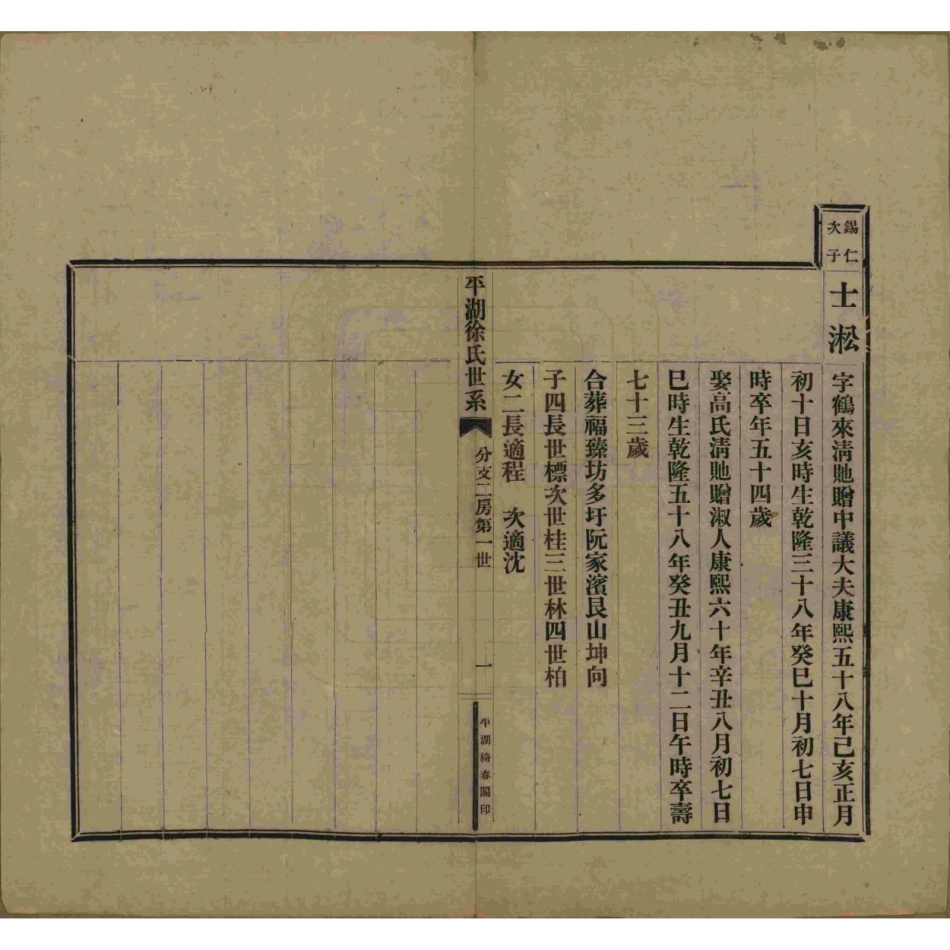 錫仁
次子
士淞
字鶴來清貤贈中議大夫康熙五十八年己亥正月
初十日亥時生乾隆三十八年癸巳十月初七日申
時卒年五十四歲
娶高氏清貤贈淑人康熙六十年辛丑八月初七日
巳時生乾隆五十八年癸丑九月十二日午時卒壽
七十三歲
合葬福臻坊多圩阮家濱艮山坤向
子四長世標次世桂三世林四世柏
女二長適程　次適沈
平湖徐氏世系
分支二房第一世
一
平湖綺春閣印